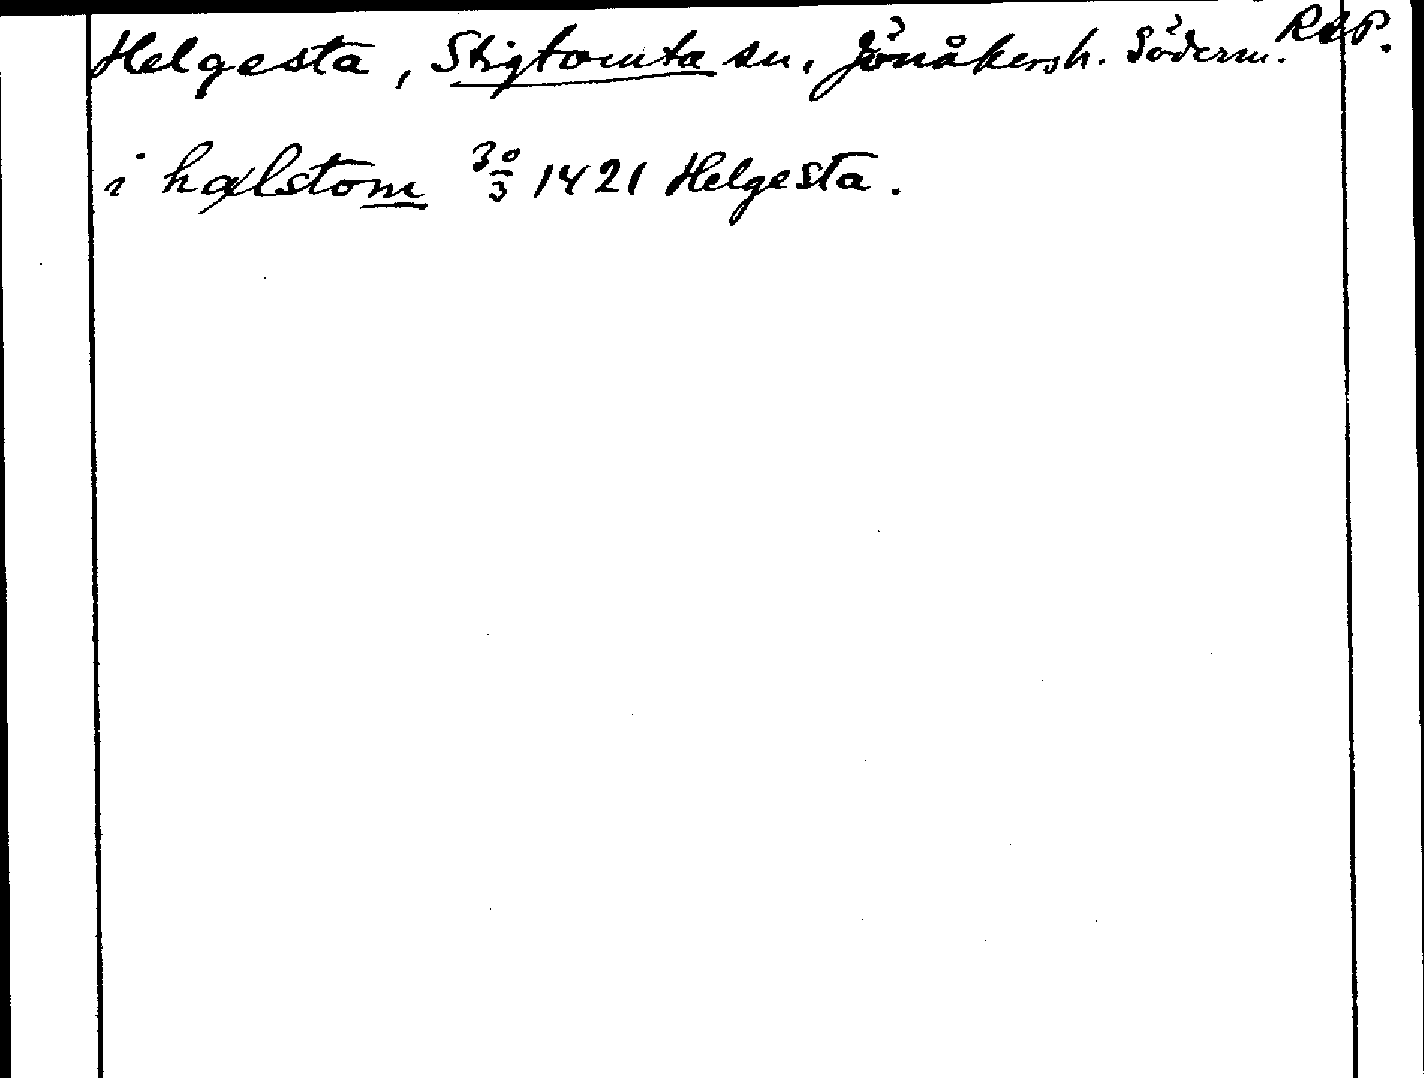 Helgesta, Stigtomta sn, Jönåkersh. Söderm. RAP.
i hælstom 30/3 1421 Helgesta.